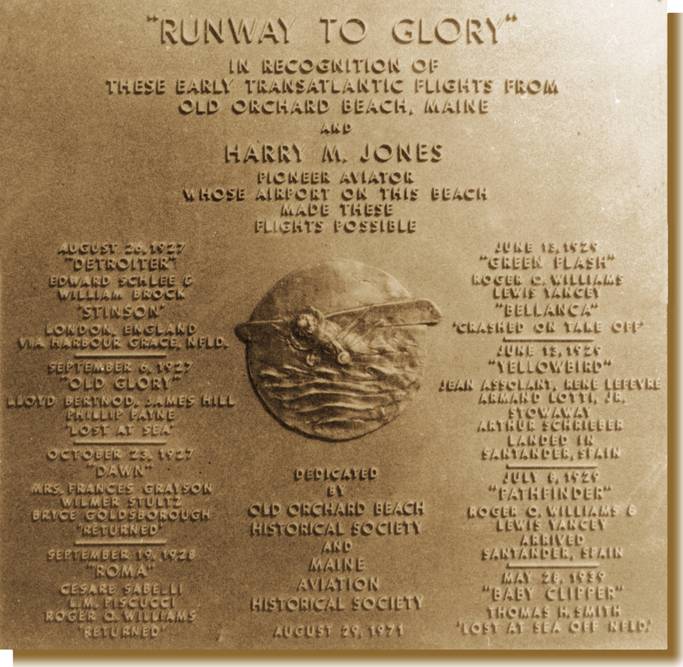 "RUNWAY TO GLORY"
IN RECOGNITION OF
THESE EARLY TRANSATLANTIC FLIGHTS FROM
OLD ORCHARD BEACH, MAINE
AND
HARRY M. JONES
PIONEER AVIATOR
WHOSE AIRPORT ON THIS BEACH
MADE THESE
FLIGHTS POSSIBLE
AUGUST 26, 1927
"DETROITER"
EDWARD SCHLEE &
WILLIAM BROCK
"STINSON"
LONDON, ENGLAND
VIA HARBOUR GRACE, NFLD.
SEPTEMBER 6, 1927
"OLD GLORY"
LLOYD BERTNOD, JAMES HILL
PHILLIP PAYNE
"LOST AT SEA"
OCTOBER 23, 1927
"DAWN"
MRS. FRANCES GRAYSON
WILMER STULTZ
BRYCE GOLDSBOROUGH
"RETURNED"
SEPTEMBER 19, 1928
"ROMA"
CESARE SABELLI
L.M. PISCUCCI
ROGER Q. WILLIAMS
"RETURNED"
DEDICATED
BY
OLD ORCHARD BEACH
HISTORICAL SOCIETY
AND
MAINE
AVIATION
HISTORICAL SOCIETY
AUGUST 29, 1971
JUNE 13, 1929
"GREEN FLASH"
ROGER Q. WILLIAMS
LEWIS YANCEY
"BELLANCA"
"CRASHED ON TAKE OFF"
JUNE 13, 1929
"YELLOWBIRD"
JEAN ASSOLANT, RENE LEFEVRE
ARMAND LOTTI, JR.
STOWAWAY
ARTHUR SCHRIEBER
LANDED IN
SANTANDER, SPAIN
JULY 8, 1929
"PATHFINDER"
ROGER Q. WILLIAMS &
LEWIS YANCEY
ARRIVED
SANTANDER, SPAIN
MAY 28, 1939
"BABY CLIPPER"
THOMAS H. SMITH
"LOST AT SEA OFF NFLD."